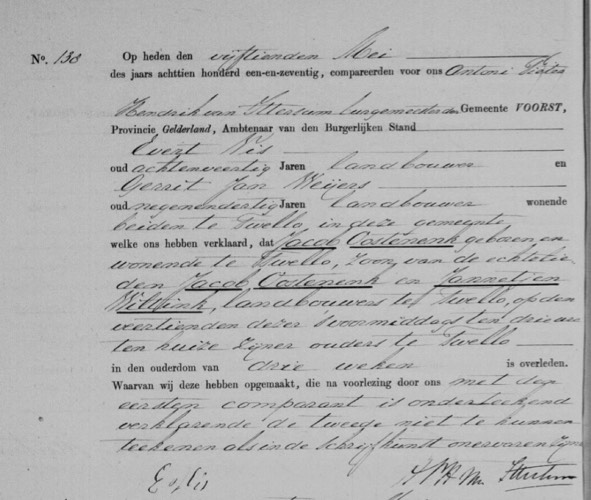 No. 138 Op heden den vijftienden Mei
des jaars achttien honderd een-en-zeventig, compareerden voor ons Antoni
Hendrik van Ittersum burgemeester der Gemeente VOORST,
Provincie Gelderland, Ambtenaar van den Burgerlijken Stand
Evert Vis
oud achtenveertig Jaren landbouwer en
Gerrit Jan Weijers
oud negenendertig Jaren landbouwer wonende
beiden te Twello, in deze gemeente
welke ons hebben verklaard, dat Jacob Costenenk geboren en
wonende te Twello, zoon van de echtelie
den Jacob Costenenk en Jannetjen
Wiltink, landbouwers te Twello, op den
veertienden dezer 's voormiddags ten drie ure
ten huize zijner ouders te Twello
in den ouderdom van drie weken is overleden.
Waarvan wij deze hebben opgemaakt, die na voorlezing door ons met den
eersten comparant is onderteekend
verklarende de tweede niet te kunnen
teekenen als in de schrijfkunst onervaren zijnde
E. Vis